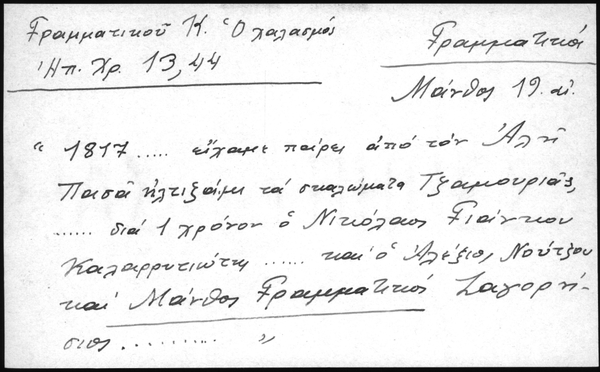 Γραμματικοῦ Κ. Ὁ χαλασμός
Ἠπ. Χρ. 13,44
Γραμματικός
Μάνθος 19. αἰ.
“ 1817 ..... εἴχαμε παίρει ἀπό τόν Ἀλῆ
Πασᾶ ἠλτιζάμι τά σκαλώματα Τζαμουριᾶς,
...... διά 1 χρόνον ὁ Νικόλαος Γιάνκου
Καλαρρυτιώτης ...... καί ὁ Ἀλέξιος Νούτζου
καί Μάνθος Γραμματικός Ζαγορή-
σιος .......... ”